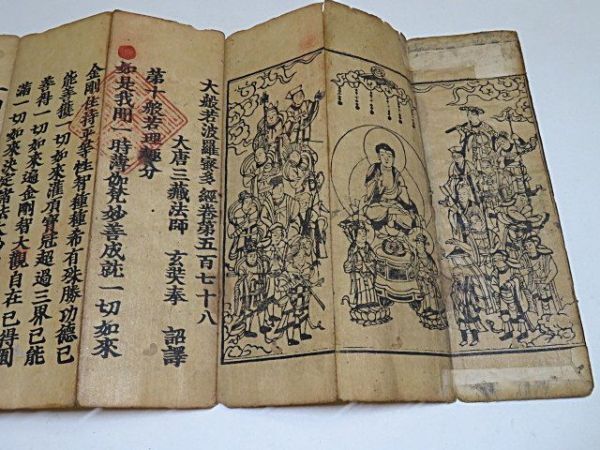 大般若波羅蜜多經卷第五百七十八
大唐三藏法師　玄奘奉　詔譯
第十般若理趣分
如是我聞一時薄伽梵妙善成就一切如來
金剛住持平等性智種種希有殊勝功德已
能善獲一切如來灌頂寶冠超過三界已能
善得一切如來遍金剛智大觀自在已得圓
滿一切如來決定諸法大